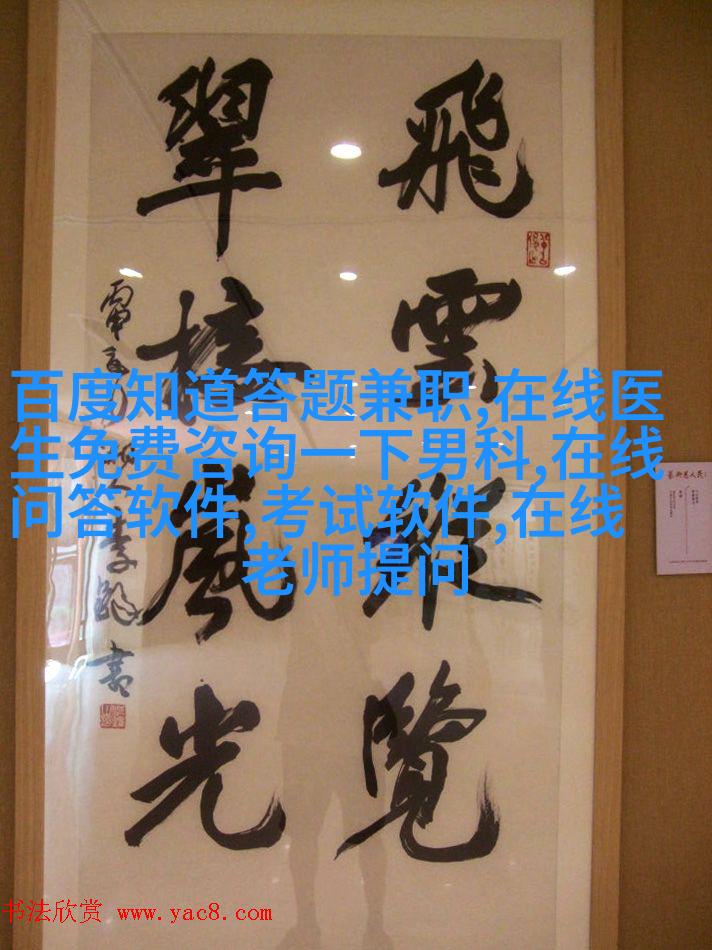 飛雲縱覽
翠光
李鐸書
百度知道答题兼职,在线医
生免费咨询一下男科,在线
问答软件,考试软件,在线
老师提问
书法欣赏 www.yac8.com